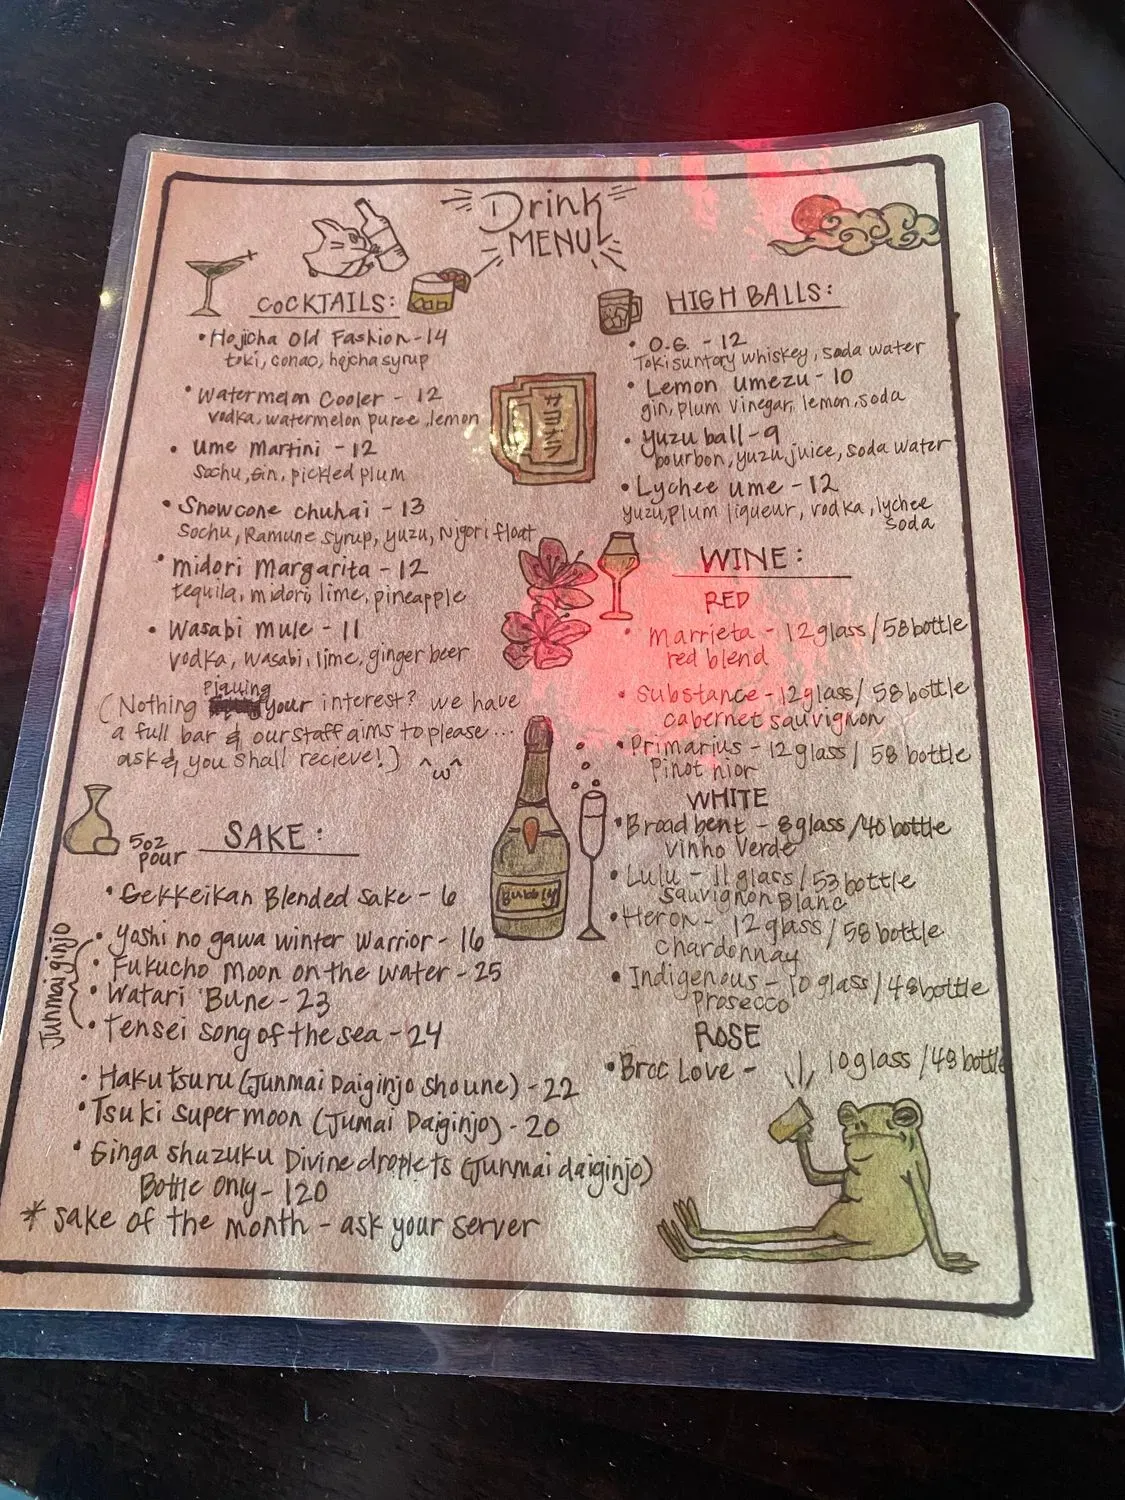 Drink
MENU
COCKTAILS:
• Hojicha Old Fashion - 14
toki, hojicha syrup
• Watermelon Cooler - 12
vodka, watermelon puree, lemon
• Ume Martini - 12
Sochu, Gin, pickled plum
• Snowcone chuhai - 13
Sochu, Ramune syrup, yuzu, Nigori float
• midori Margarita - 12
tequila, midori, lime, pineapple
• Wasabi mule - 11
vodka, wasabi, lime, ginger beer
piquing
(Nothing your interest? we have
a full bar & our staff aims to please...
ask & you shall recieve!) ^ω^
5oz
pour
SAKE:
• Gekkeikan Blended Sake - 6
Junmai ginjo
• Yoshi no gawa winter Warrior - 16
• Fukucho Moon on the water - 25
• Watari Bune - 23
• Tensei song of the sea - 24
• Hakutsuru (Junmai Daiginjo shoune) - 22
• Tsuki super moon (Jumai Daiginjo) - 20
• Ginga shuzuku Divine droplets (Junmai daiginjo)
Bottle only - 120
* sake of the month - ask your server
サヨナラ
Bubbly
HIGH BALLS:
• O.G. - 12
Toki suntory whiskey, soda water
• Lemon umezu - 10
gin, plum vinegar, lemon, soda
• Yuzu ball - 9
bourbon, yuzu juice, soda water
• Lychee ume - 12
yuzu, plum liqueur, vodka, lychee
soda
WINE:
RED
• marrieta - 12 glass / 58 bottle
red blend
• Substance - 12 glass / 58 bottle
cabernet sauvignon
• Primarius - 12 glass / 58 bottle
Pinot nior
WHITE
• Broadbent - 8 glass / 40 bottle
vinho verde
• Lulu - 11 glass / 53 bottle
Sauvignon Blanc
• Heron - 12 glass / 58 bottle
chardonnay
• Indigenous - 10 glass / 48 bottle
Prosecco
ROSE
• Broc Love - 10 glass / 48 bottle